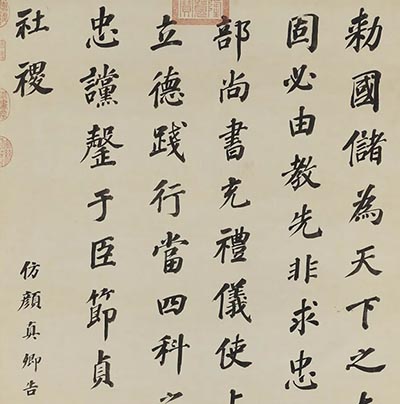 勅國儲為天下之
固必由教先非求忠
部尚書充禮儀使
立德踐行當四科
忠讜罄于臣節貞
社稷
仿顏真卿告